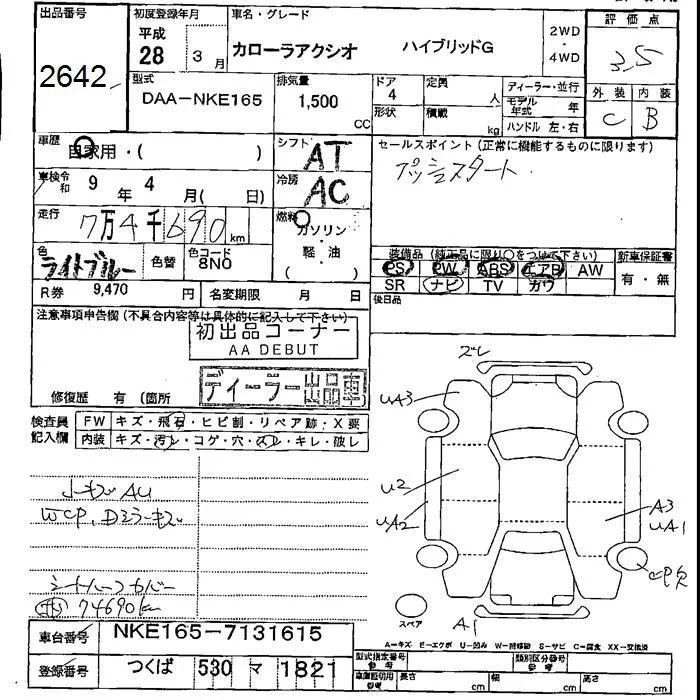 出品番号
2642
初度登録年月
平成
28
3月
車名・グレード
カローラアクシオ ハイブリッドG
2WD
・
4WD
評価点
3.5
外装 内装
C B
型式
DAA-NKE165
排気量
1,500
CC
ドア
4
定員
人
形状
積載
kg
ディーラー・並行
モデル年式 年
ハンドル 左・右
車歴
自家用・( )
シフト
AT
セールスポイント (正常に機能するものに限ります)
プッシュスタート
車検 令和
9年 4月( 日)
冷房
AC
走行
7万4千690km
燃料
ガソリン
・
軽・油
( )
色
ライトブルー
色替
色コード
8N0
装備品 (純正品に限り○をつけて下さい)
PS PW ABS エアB AW
SR ナビ TV カワ
新車保証書
有・無
R券 9,470 円
名変期限 月 日
後日品
注意事項申告欄 (不具合内容等は具体的に記入して下さい)
初出品コーナー
AA DEBUT
ディーラー出品車
修復歴 有 (箇所
検査員
記入欄
FW キズ・飛石・ヒビ割・リペア跡・X要
内装 キズ・汚レ・コゲ・穴・スレ・キレ・破レ
WCP、Dミラーキズ
シートハーフカバー
74690km
ズレ
UA3
U2
UA2
A3
UA1
CP欠
スペア
A1
A=キズ E=エクボ U=凹み W=補修跡 S=サビ C=腐食 XX=交換済
車台番号 NKE165-7131615
登録番号 つくば 530 マ 1821
型式指定番号
参考
類別区分番号
参考
車庫証明用
参考
長さ cm
幅 cm
高さ cm